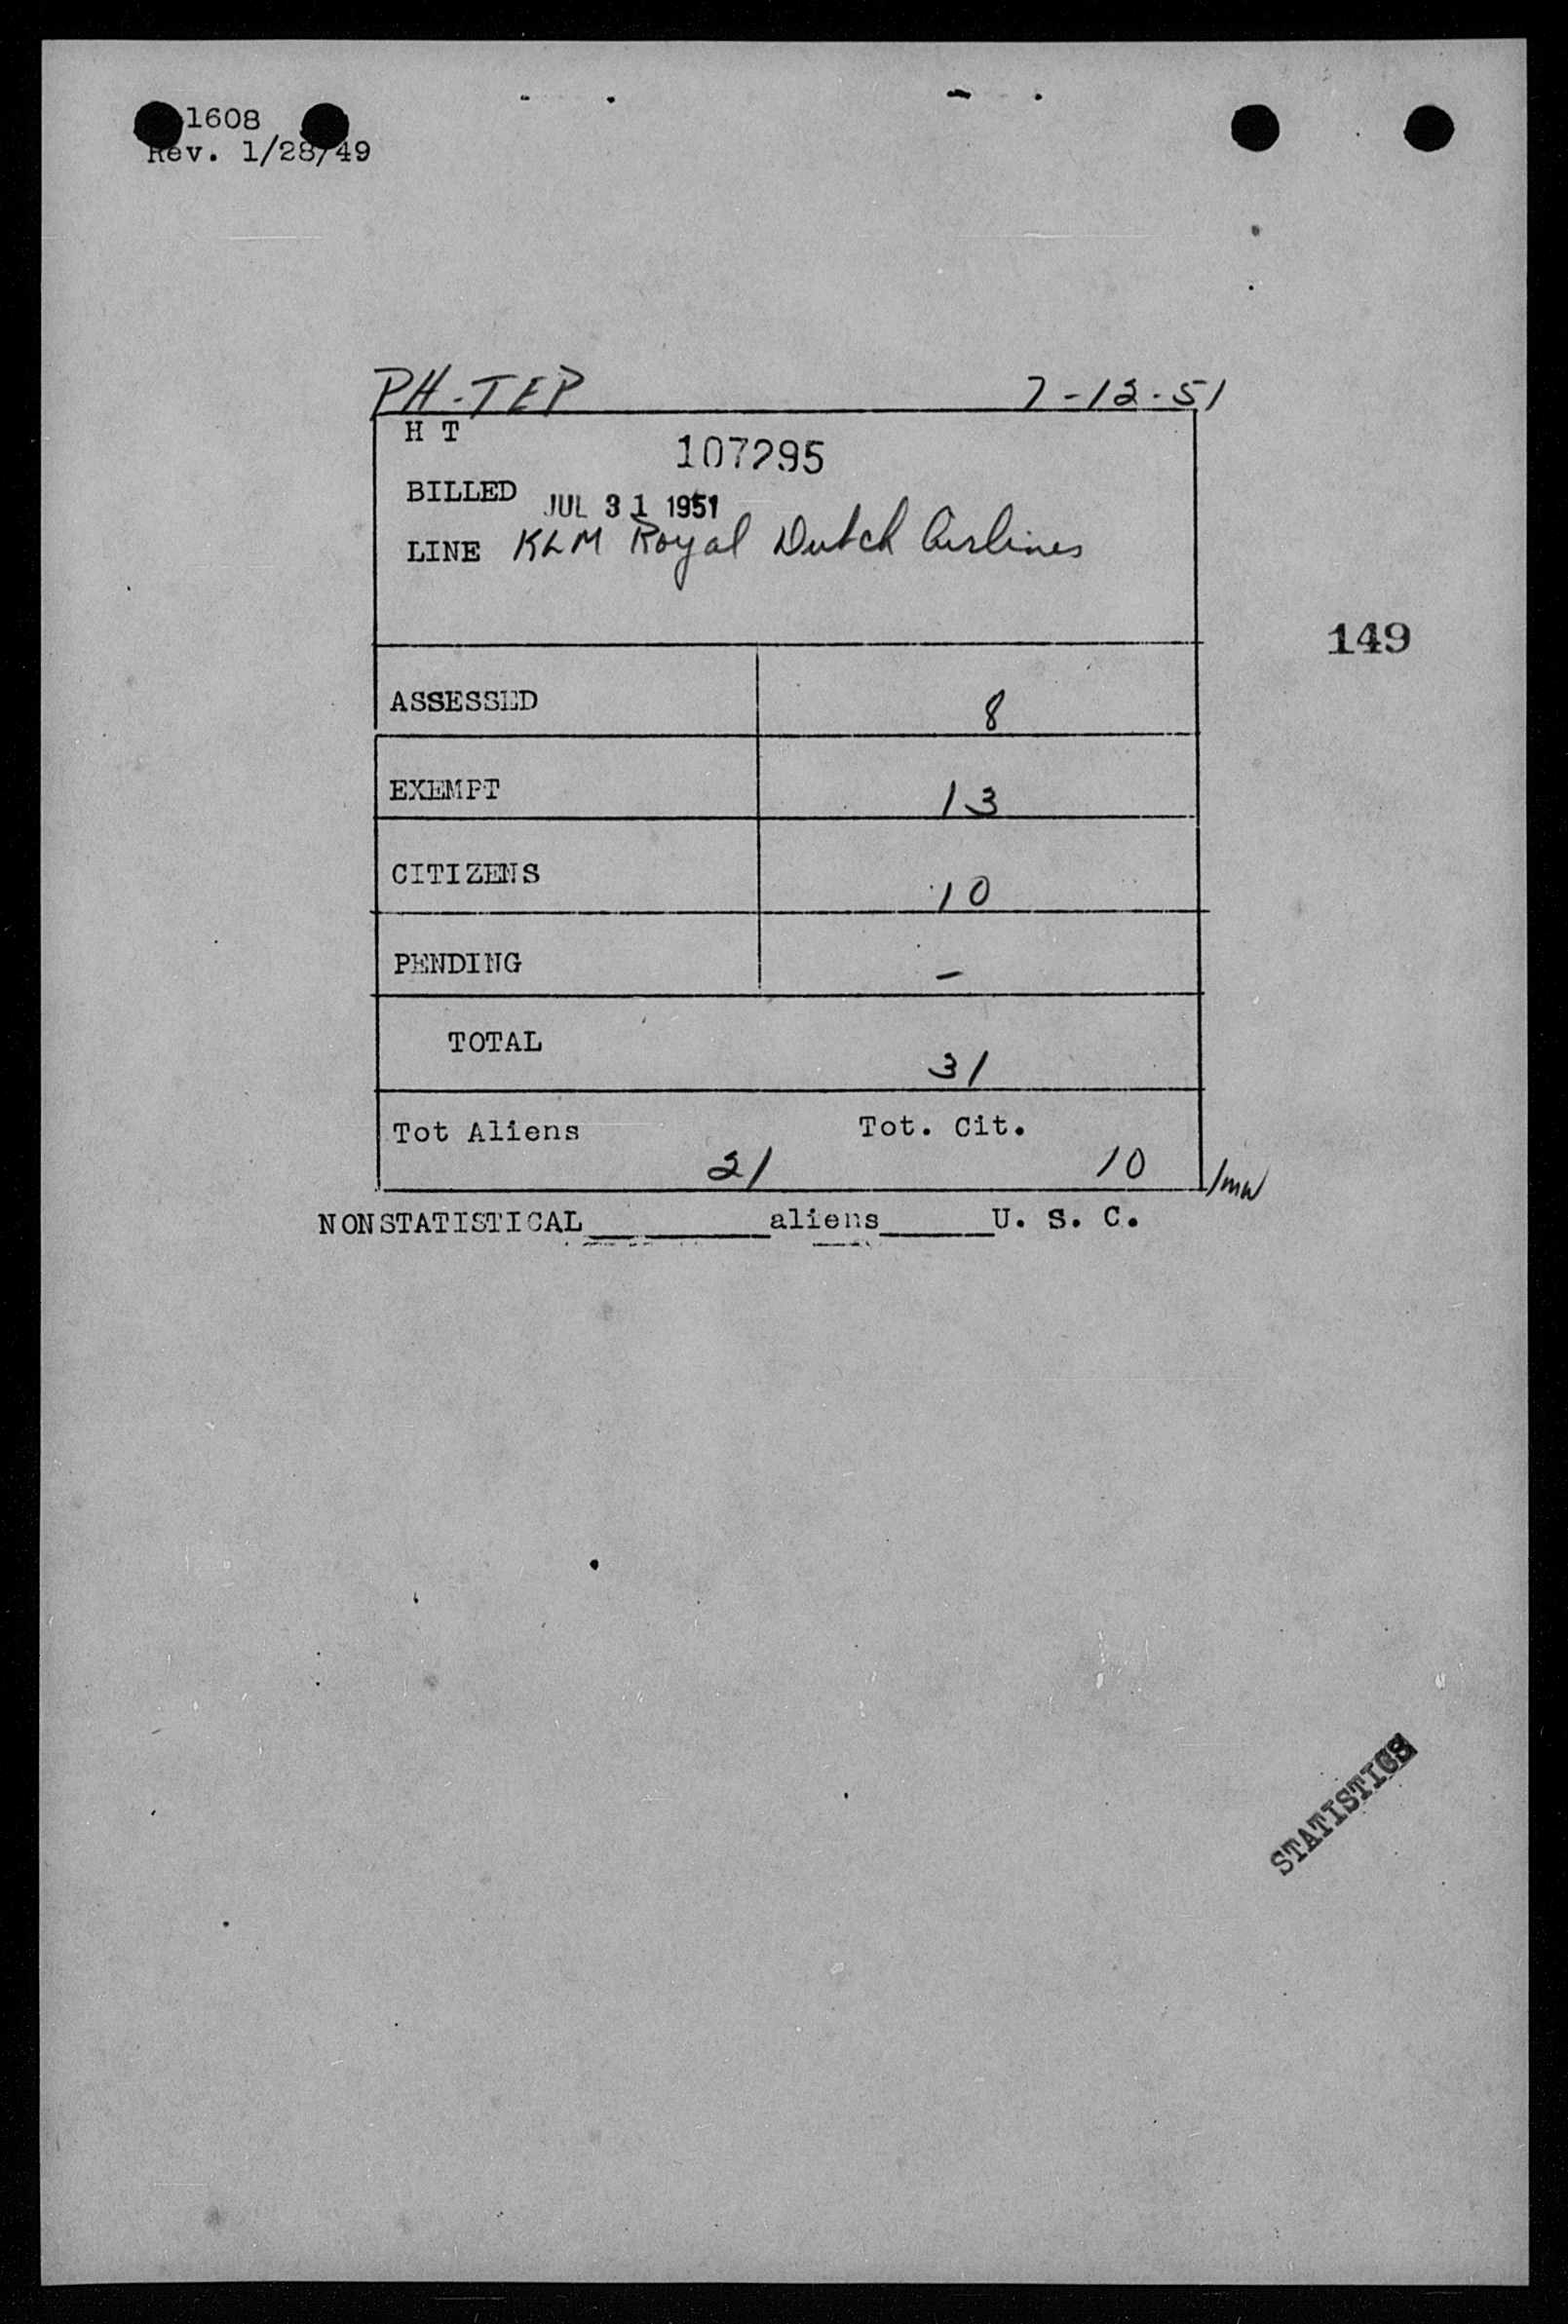 1608
Rev. 1/28/49
PH-TEP 7-12-51
H T
107295
BILLED JUL 31 1951
LINE KLM Royal Dutch Airlines
149
ASSESSED 8
EXEMPT 13
CITIZENS 10
PENDING -
TOTAL 31
Tot Aliens 21 Tot. Cit. 10
/mw
NONSTATISTICAL________aliens_____U. S. C.
STATISTICS